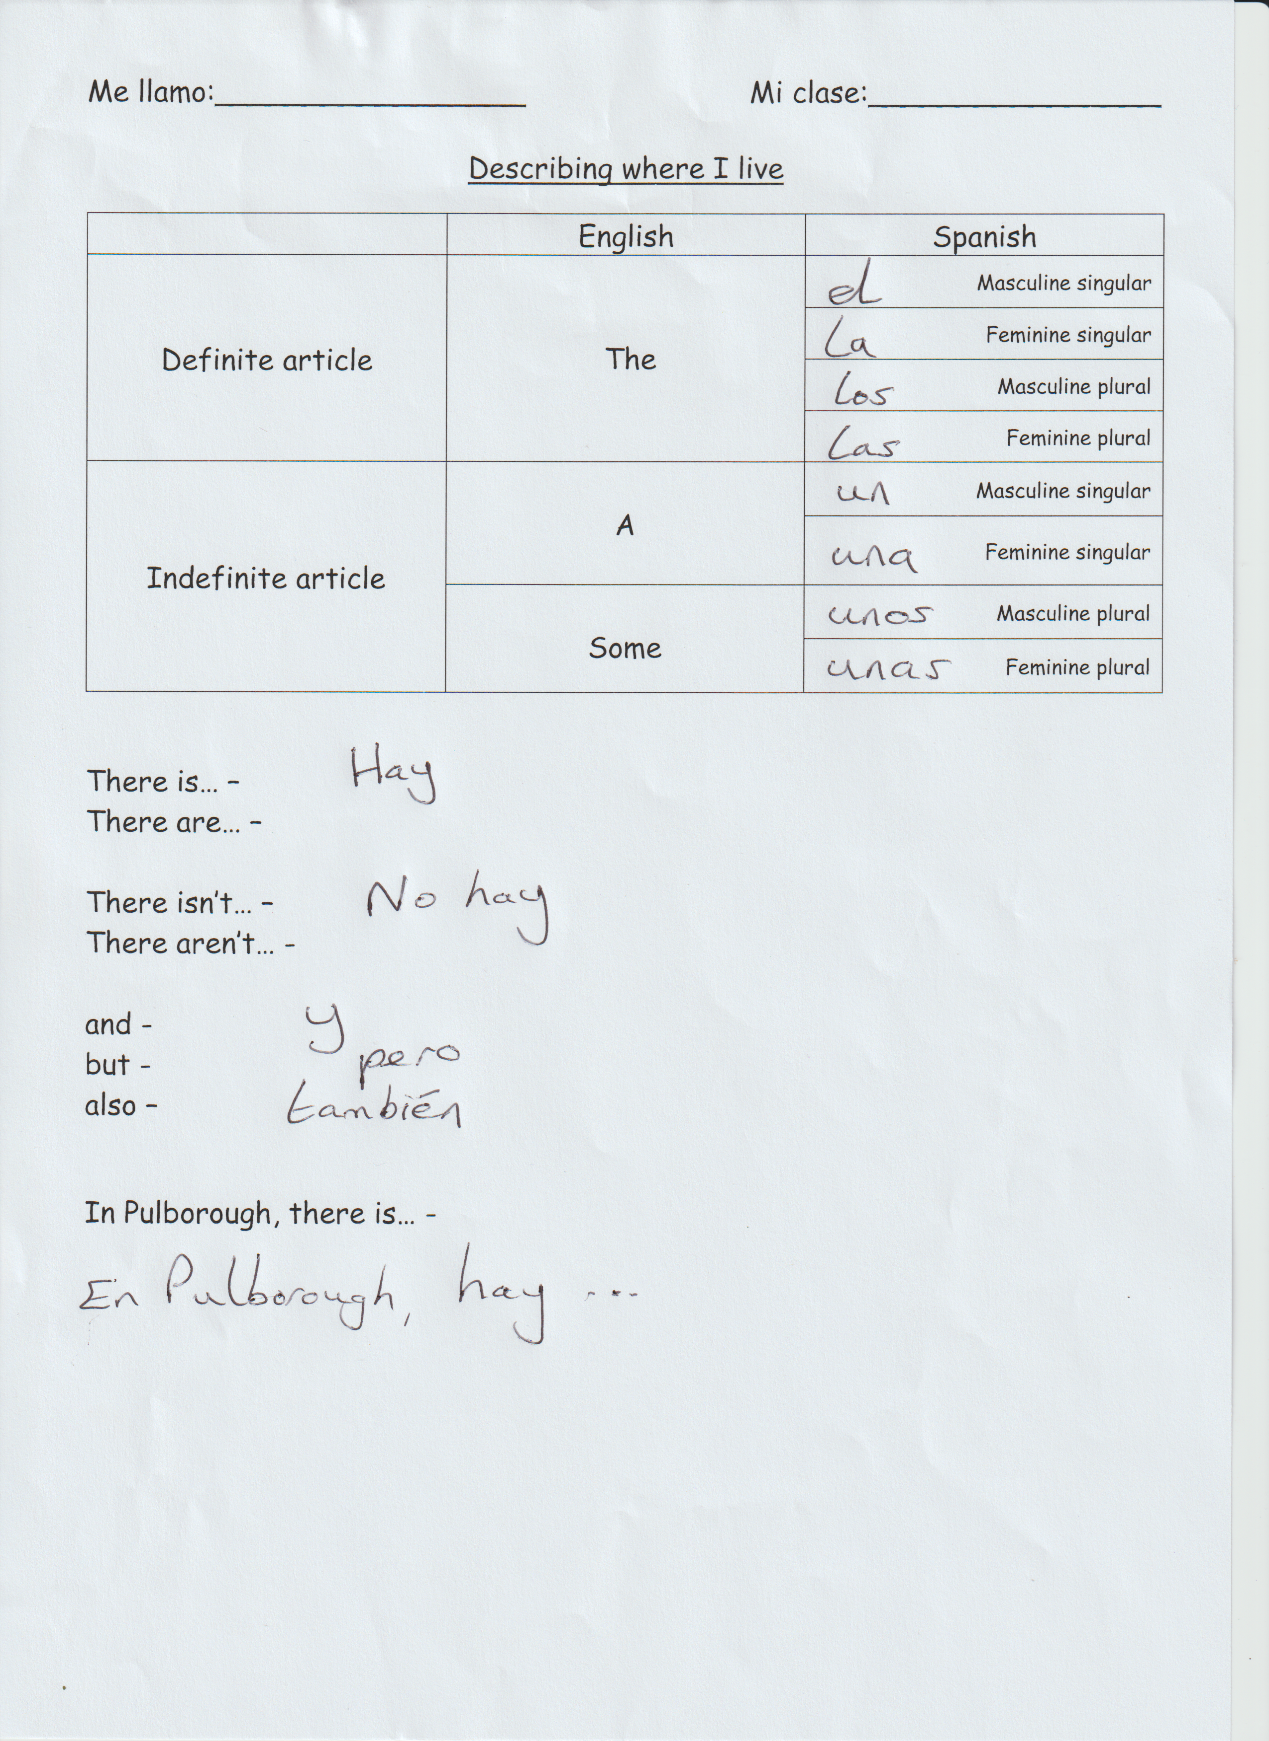 Me llamo:____________________ Mi clase:___________________
Describing where I live
English Spanish
Definite article The el Masculine singular
La Feminine singular
Los Masculine plural
Las Feminine plural
Indefinite article A un Masculine singular
una Feminine singular
Some unos Masculine plural
unas Feminine plural
There is... - Hay
There are... -
There isn't... - No hay
There aren't... -
and - y
but - pero
also - también
In Pulborough, there is... -
En Pulborough, hay ...